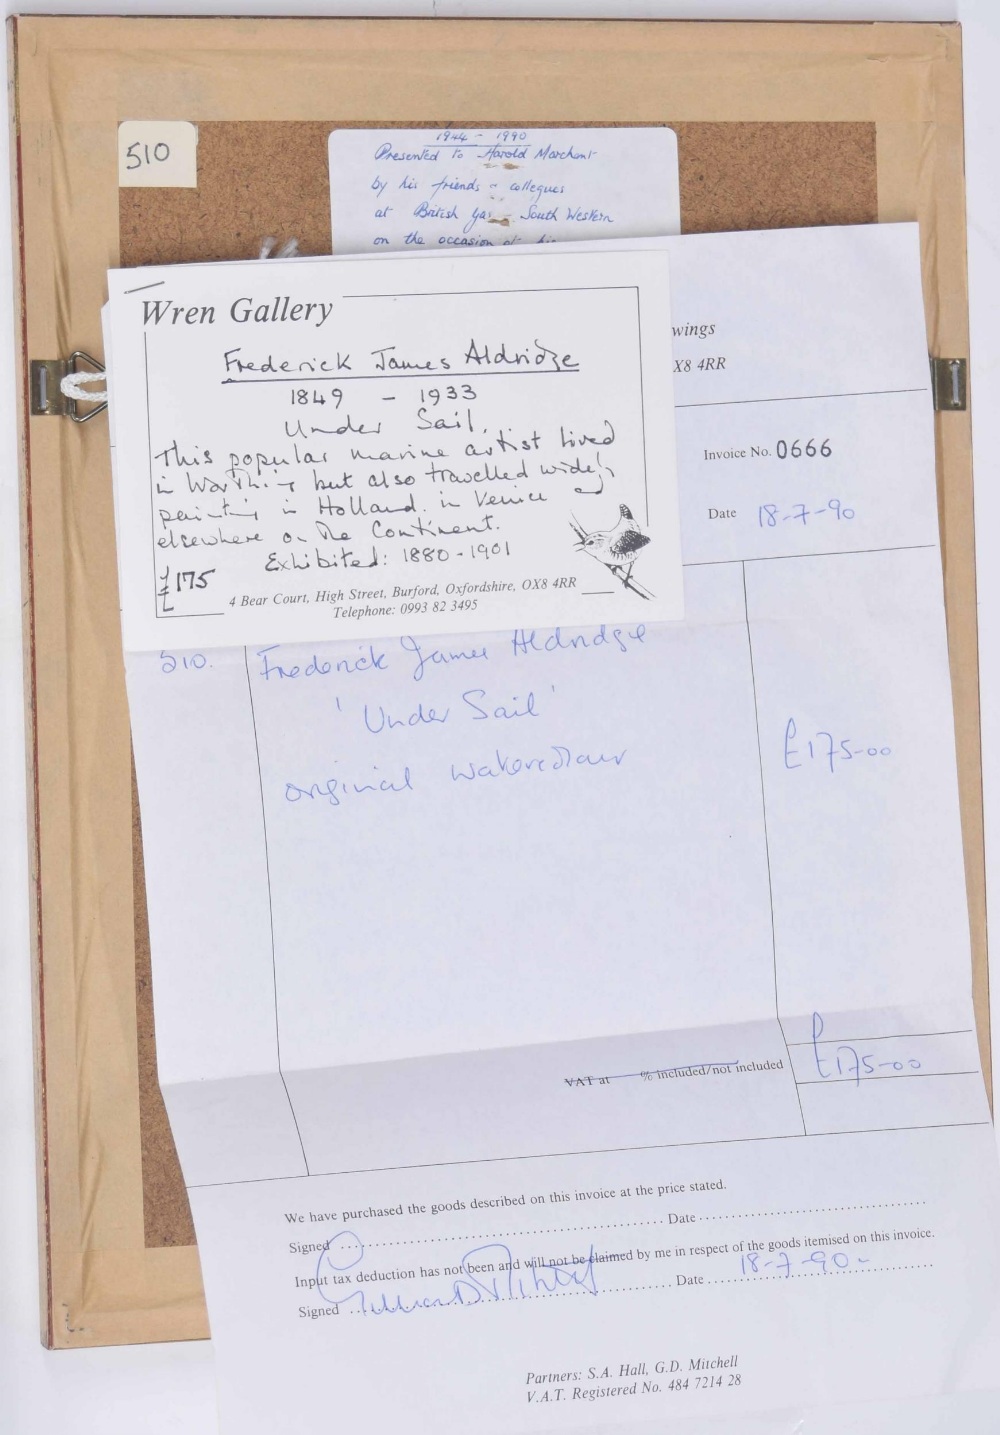 510
1944 - 1990
Presented to Harold Marchant
by his friends & collegues
at British Gas - South Western
on the occasion of his
Wren Gallery
Frederick James Aldridge
1849 - 1933
Under Sail.
This popular marine artist lived
in Worthing but also travelled widely,
painting in Holland, in Venice and
elsewhere on the Continent.
Exhibited: 1880-1901
£175
4 Bear Court, High Street, Burford, Oxfordshire, OX8 4RR
Telephone: 0993 82 3495
wings
X8 4RR
Invoice No. 0666
Date 18-7-90
510. Frederick James Aldridge
'Under Sail'
original watercolour
£175-00
VAT at % included/not included £175-00
We have purchased the goods described on this invoice at the price stated.
Signed Date
Input tax deduction has not been and will not be claimed by me in respect of the goods itemised on this invoice.
Signed Date 18-7-90-
Partners: S.A. Hall, G.D. Mitchell
V.A.T. Registered No. 484 7214 28